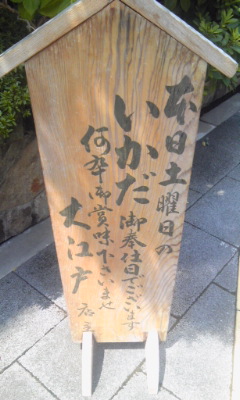 本日土曜日の
いかだ
御奉仕日でございます
何卒御賞味下さいませ
大江戸